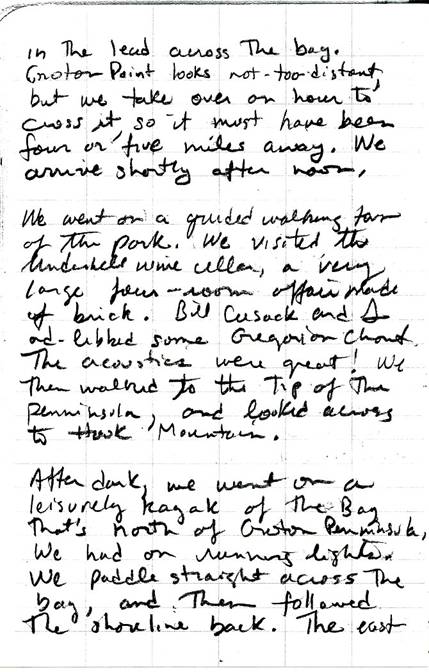 in The lead across The bay.
Croton Point looks not-too-distant,
but we take over an hour to
cross it so it must have been
four or five miles away. We
arrive shortly after noon.
We went on a guided walking tour
of the park. We visited the
Underhill wine cellar, a very
large four-room affair made
of brick. Bill Cusack and I
ad-libbed some Gregorian Chant.
The acoustics were great! We
then walked to the Tip of The
Penninsula, and looked across
to Hook Mountain.
After dark, we went on a
leisurely kayak of The Bay
That's north of Croton Penninsula,
We had on running lights.
We paddle straight across The
bay, and Then followed
The shoreline back. The east